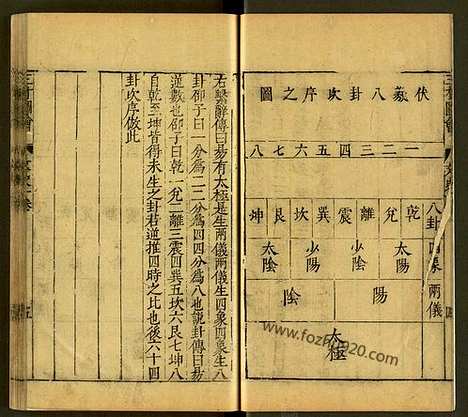 三才圖會
伏羲八卦次序之圖
一二三四五六七八
乾兌離震巽坎艮坤
八卦
太陽 少陰 少陽 太陰
四象
陽 陰
兩儀
太極
五
右繫辭傳曰易有太極是生兩儀兩儀生四象四象生八
卦邵子曰一分為二二分為四四分為八也說卦傳曰易
逆數也邵子曰乾一兌二離三震四巽五坎六艮七坤八
自乾至坤皆得未生之卦若逆推四時之比也後六十四
卦次序倣此
三才圖會
www.fozhu920.com